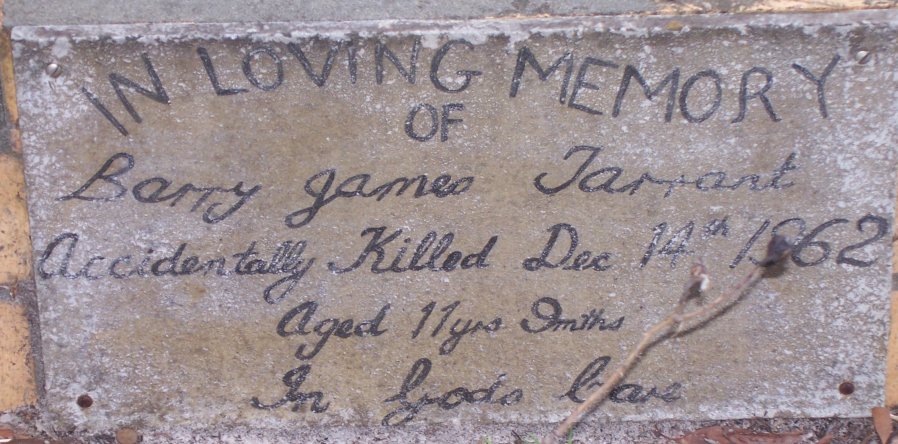 IN LOVING MEMORY
OF
Barry James Tarrant
Accidentally Killed Dec 14th 1962
Aged 11yrs 9mths
In Gods Care